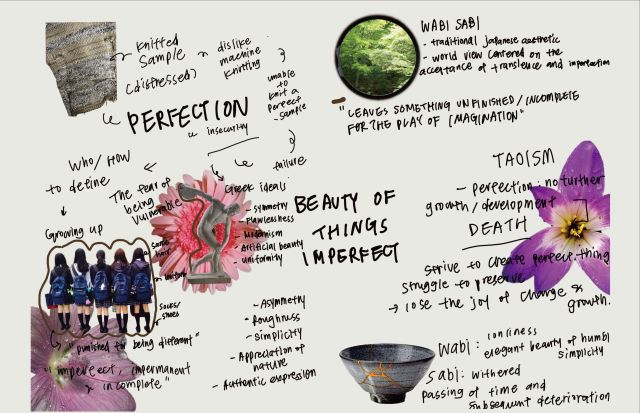 Knitted
Sample
(distressed)
dislike
machine
knitting
unable
to
knit a
perfect
sample
failure
PERFECTION
insecurity
WHO/HOW
to define
The fear of
being
vulnerable
Growing up
same
hair
uniform
socks/
shoes
"punished for being different"
"imperfect, impermanent
& incomplete"
Greek ideals:
- symmetry
- Flawlessness
- Modernism
Artificial beauty
uniformity
BEAUTY OF
THINGS
IMPERFECT
- Asymmetry
- Roughness
- Simplicity
- Appreciation of
nature
- Authentic expression
WABI SABI
- traditional japanese aesthetic
- world view centered on the
acceptance of transience and imperfection
"LEAVES SOMETHING UNFINISHED/INCOMPLETE
FOR THE PLAY OF IMAGINATION"
TAOISM
- perfection: no further
growth/development
DEATH
strive to create perfect thing
struggle to preserve
→ lose the joy of change &
growth.
Wabi: lonliness
elegant beauty of humbl
simplicity
Sabi: withered
passing of time and
subsequent deterioration